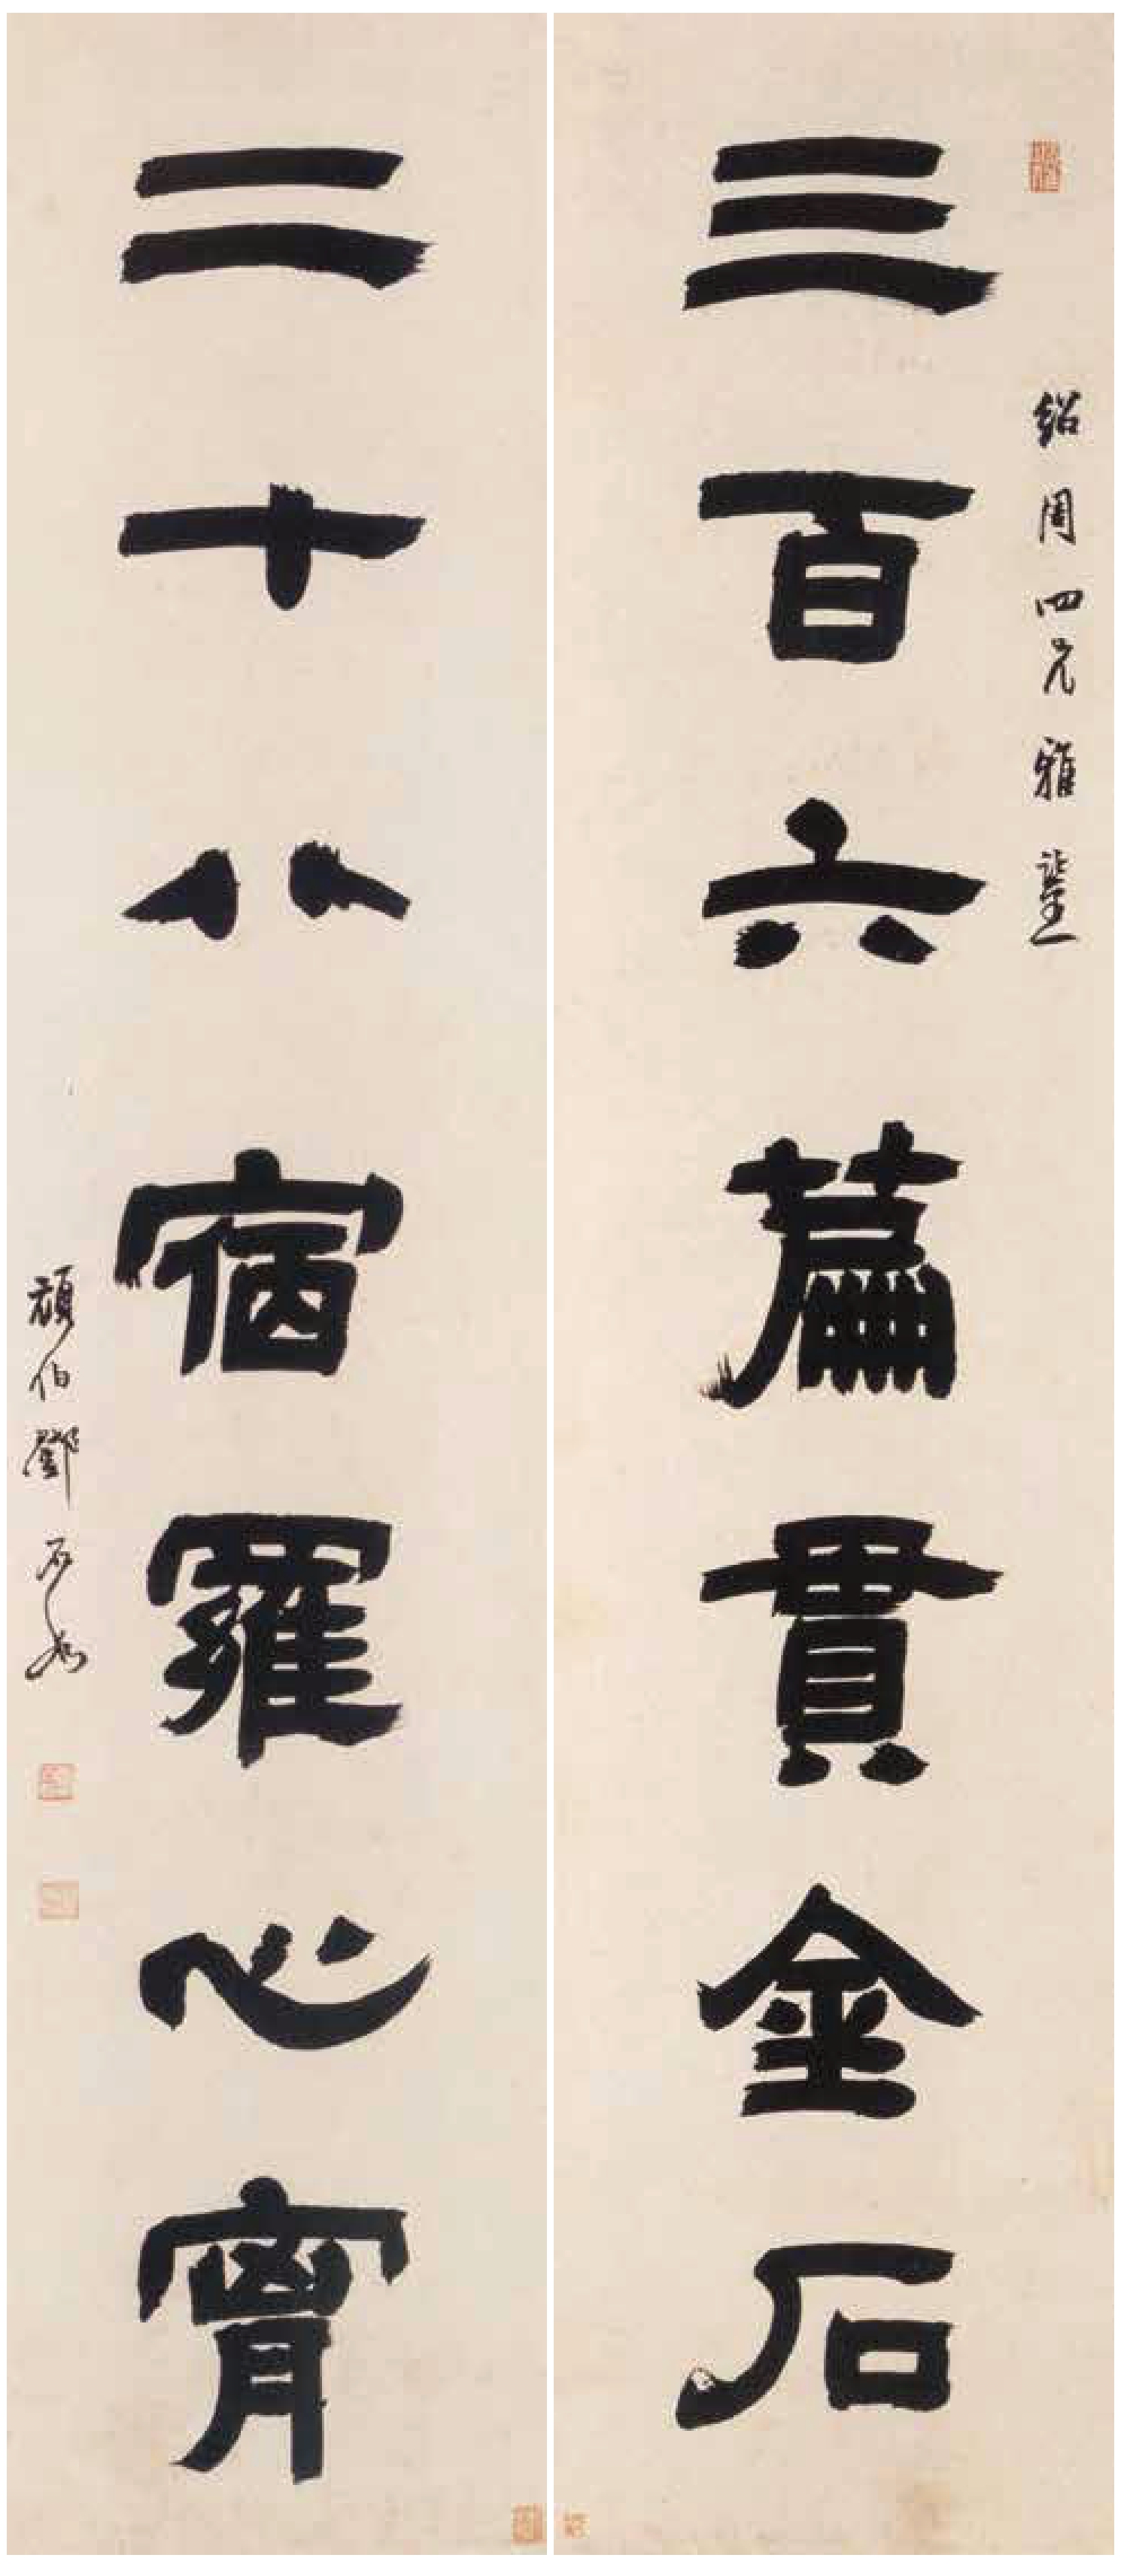 紹周四兄雅鑒
三百六篇貫金石
二十八宿羅心胷
頑伯鄧石如